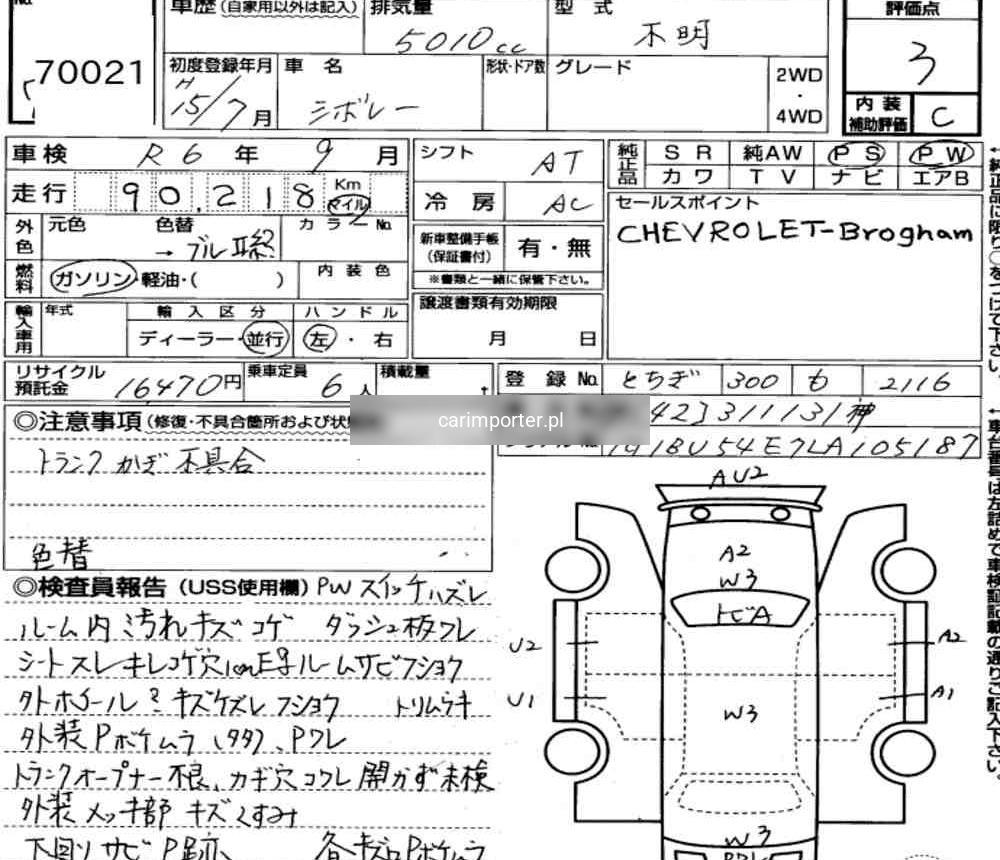 No.
70021
車歴 (自家用以外は記入)
排気量
5010cc
型式
不明
評価点
3
内装補助評価
C
初度登録年月
H15/7月
車名
シボレー
形状・ドア数
グレード
2WD
・
4WD
車検 R6年 9月
走行 90,218 Km マイル
外色
元色
色替
カラーNo.
→ ブルⅡ総
燃料
ガソリン・軽油・( )
内装色
輸入車用
年式
輸入区分
ディーラー・並行
ハンドル
左・右
リサイクル預託金 16470円
乗車定員 6人
積載量 t
シフト AT
冷房 AC
新車整備手帳(保証書付)
有・無
※書類と一緒に保管下さい。
譲渡書類有効期限
月 日
純正品
SR 純AW PS PW
カワ TV ナビ エアB
セールスポイント
CHEVROLET-Brogham
登録No. とちぎ 300 も 2116
423311131神
1G1BU54E7LA105187
carimporter.pl
◎注意事項(修復・不具合箇所および状
トランクかぎ不具合
色替
◎検査員報告(USS使用欄) PWスイッチハズレ
ルーム内ミ汚れキズコゲ ダッシュ板ワレ
シートスレキレコゲ穴 ルームサビフショク
タトホイールミキズケズレフショク トリムウキ
外装Pボケムラ(タタ)、Pワレ
トランクオープナー不良、カギ穴コワレ開かず未検
外装メッキ部キズくすみ
下回リサビP跡 各キズPボケムラ
AU2
A2
W3
トビA
U2
A2
U1
A1
W3
W3
↑純正品に限り○をつけて下さい。
↑車台番号は左詰めで車検証記載の通りご記入下さい。